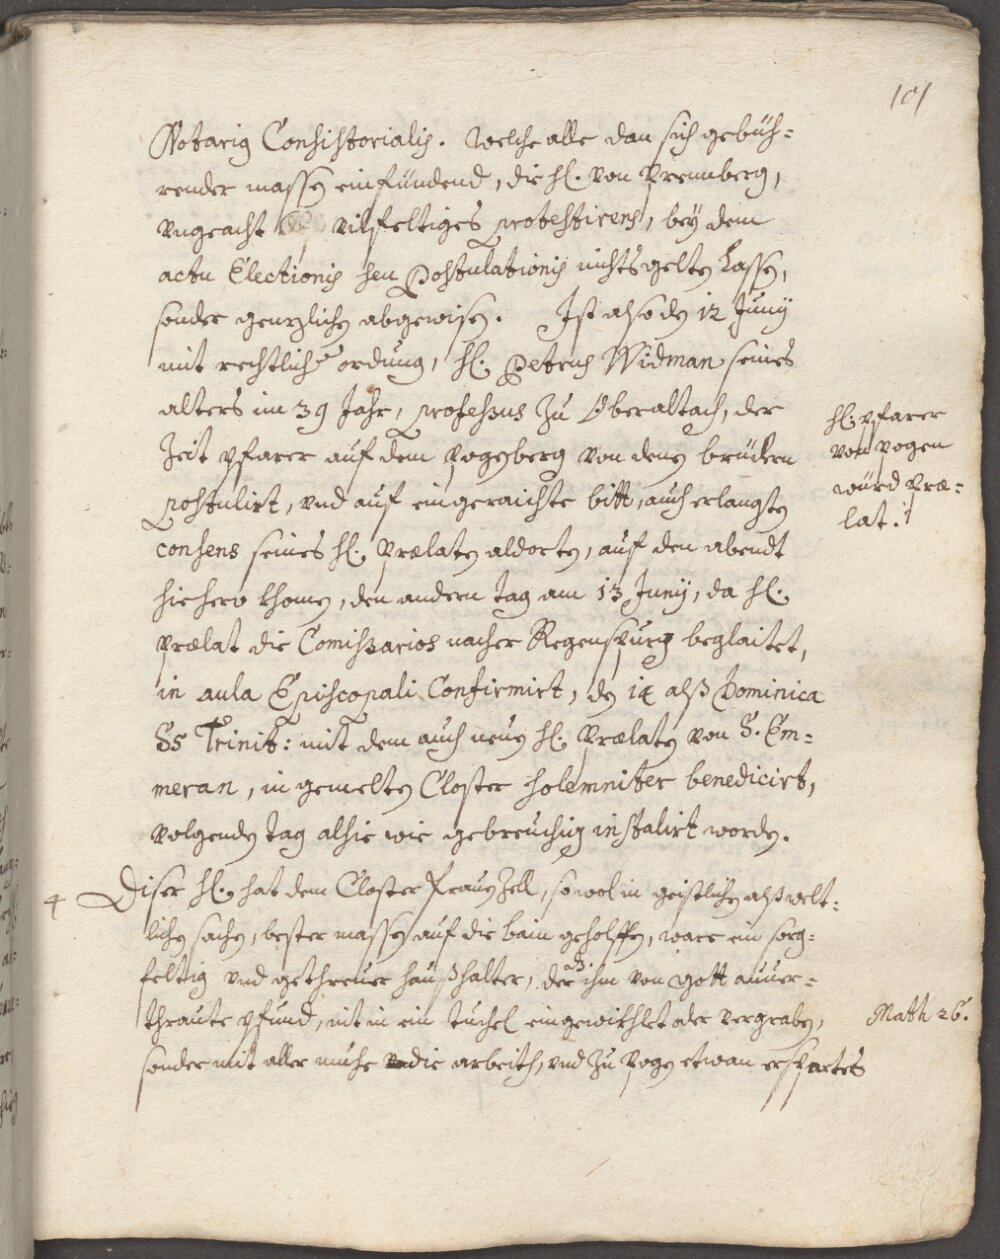 101
Notarig Consistorialis. Welche alle dan sich gebüh=
render massen einfündend, die hl. von Prennberg,
vngeacht vilfeltiges protestirens, bey dem
actu Electionis seu Postulationis nichts gelten Lassen,
sonder gentzlichen abgewisen. Ist also den 12 Junÿ
mit rechtlicher ordnung, hl. Petrus Widman seines
alters im 39 Jahr, professus zu Oberaltach, der
Zeit pfarer auf dem pogenberg von denen brüdern
postulirt, vnd auf eingeraichte bitt, auch erlangten
consens seines hl. Prælaten aldorten, auf den abendt
hiehero khomen, den andern tag am 13 Junÿ, da hl.
Prælat die Comissarios nacher Regenspurg beglaitet,
in aula Episcopali Confirmirt, den 14 alß Dominica
SS Trinit: mit dem auch neuen hl. Prælaten von S. Em=
meran, in gemelten Closter solemniter benedicirt,
volgenden tag alhie wie gebreuchig installirt worden.
hl. pfarer
von pogen
würd Præ=
lat.
4 Diser hl. hat dem Closter FrauenZell, sowol in geistlichen alß welt=
lichen sachen, bester massen auf die bain geholffen, ware ein sorg=
feltig vnd gethreuer haußhalter, der dz ihm von Gott anuer=
thraute pfund, nit in ein tuchel eingewikhlet oder vergraben,
sonder mit aller muhe vnd arbeith, vnd zu pogen etwan erspartes
Math 26.